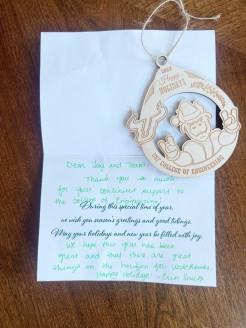 Happy
HOLIDAYS
COLLEGE OF ENGINEERING
Dear Jay and Team,
Thank you so much
for your continued support to
the College of Engineering!
During this special time of year,
we wish you season's greetings and good tidings.
May your holidays and new year be filled with joy.
We hope this year has been
great and that there are great
things on the horizon for
Happy Holidays! - Erin